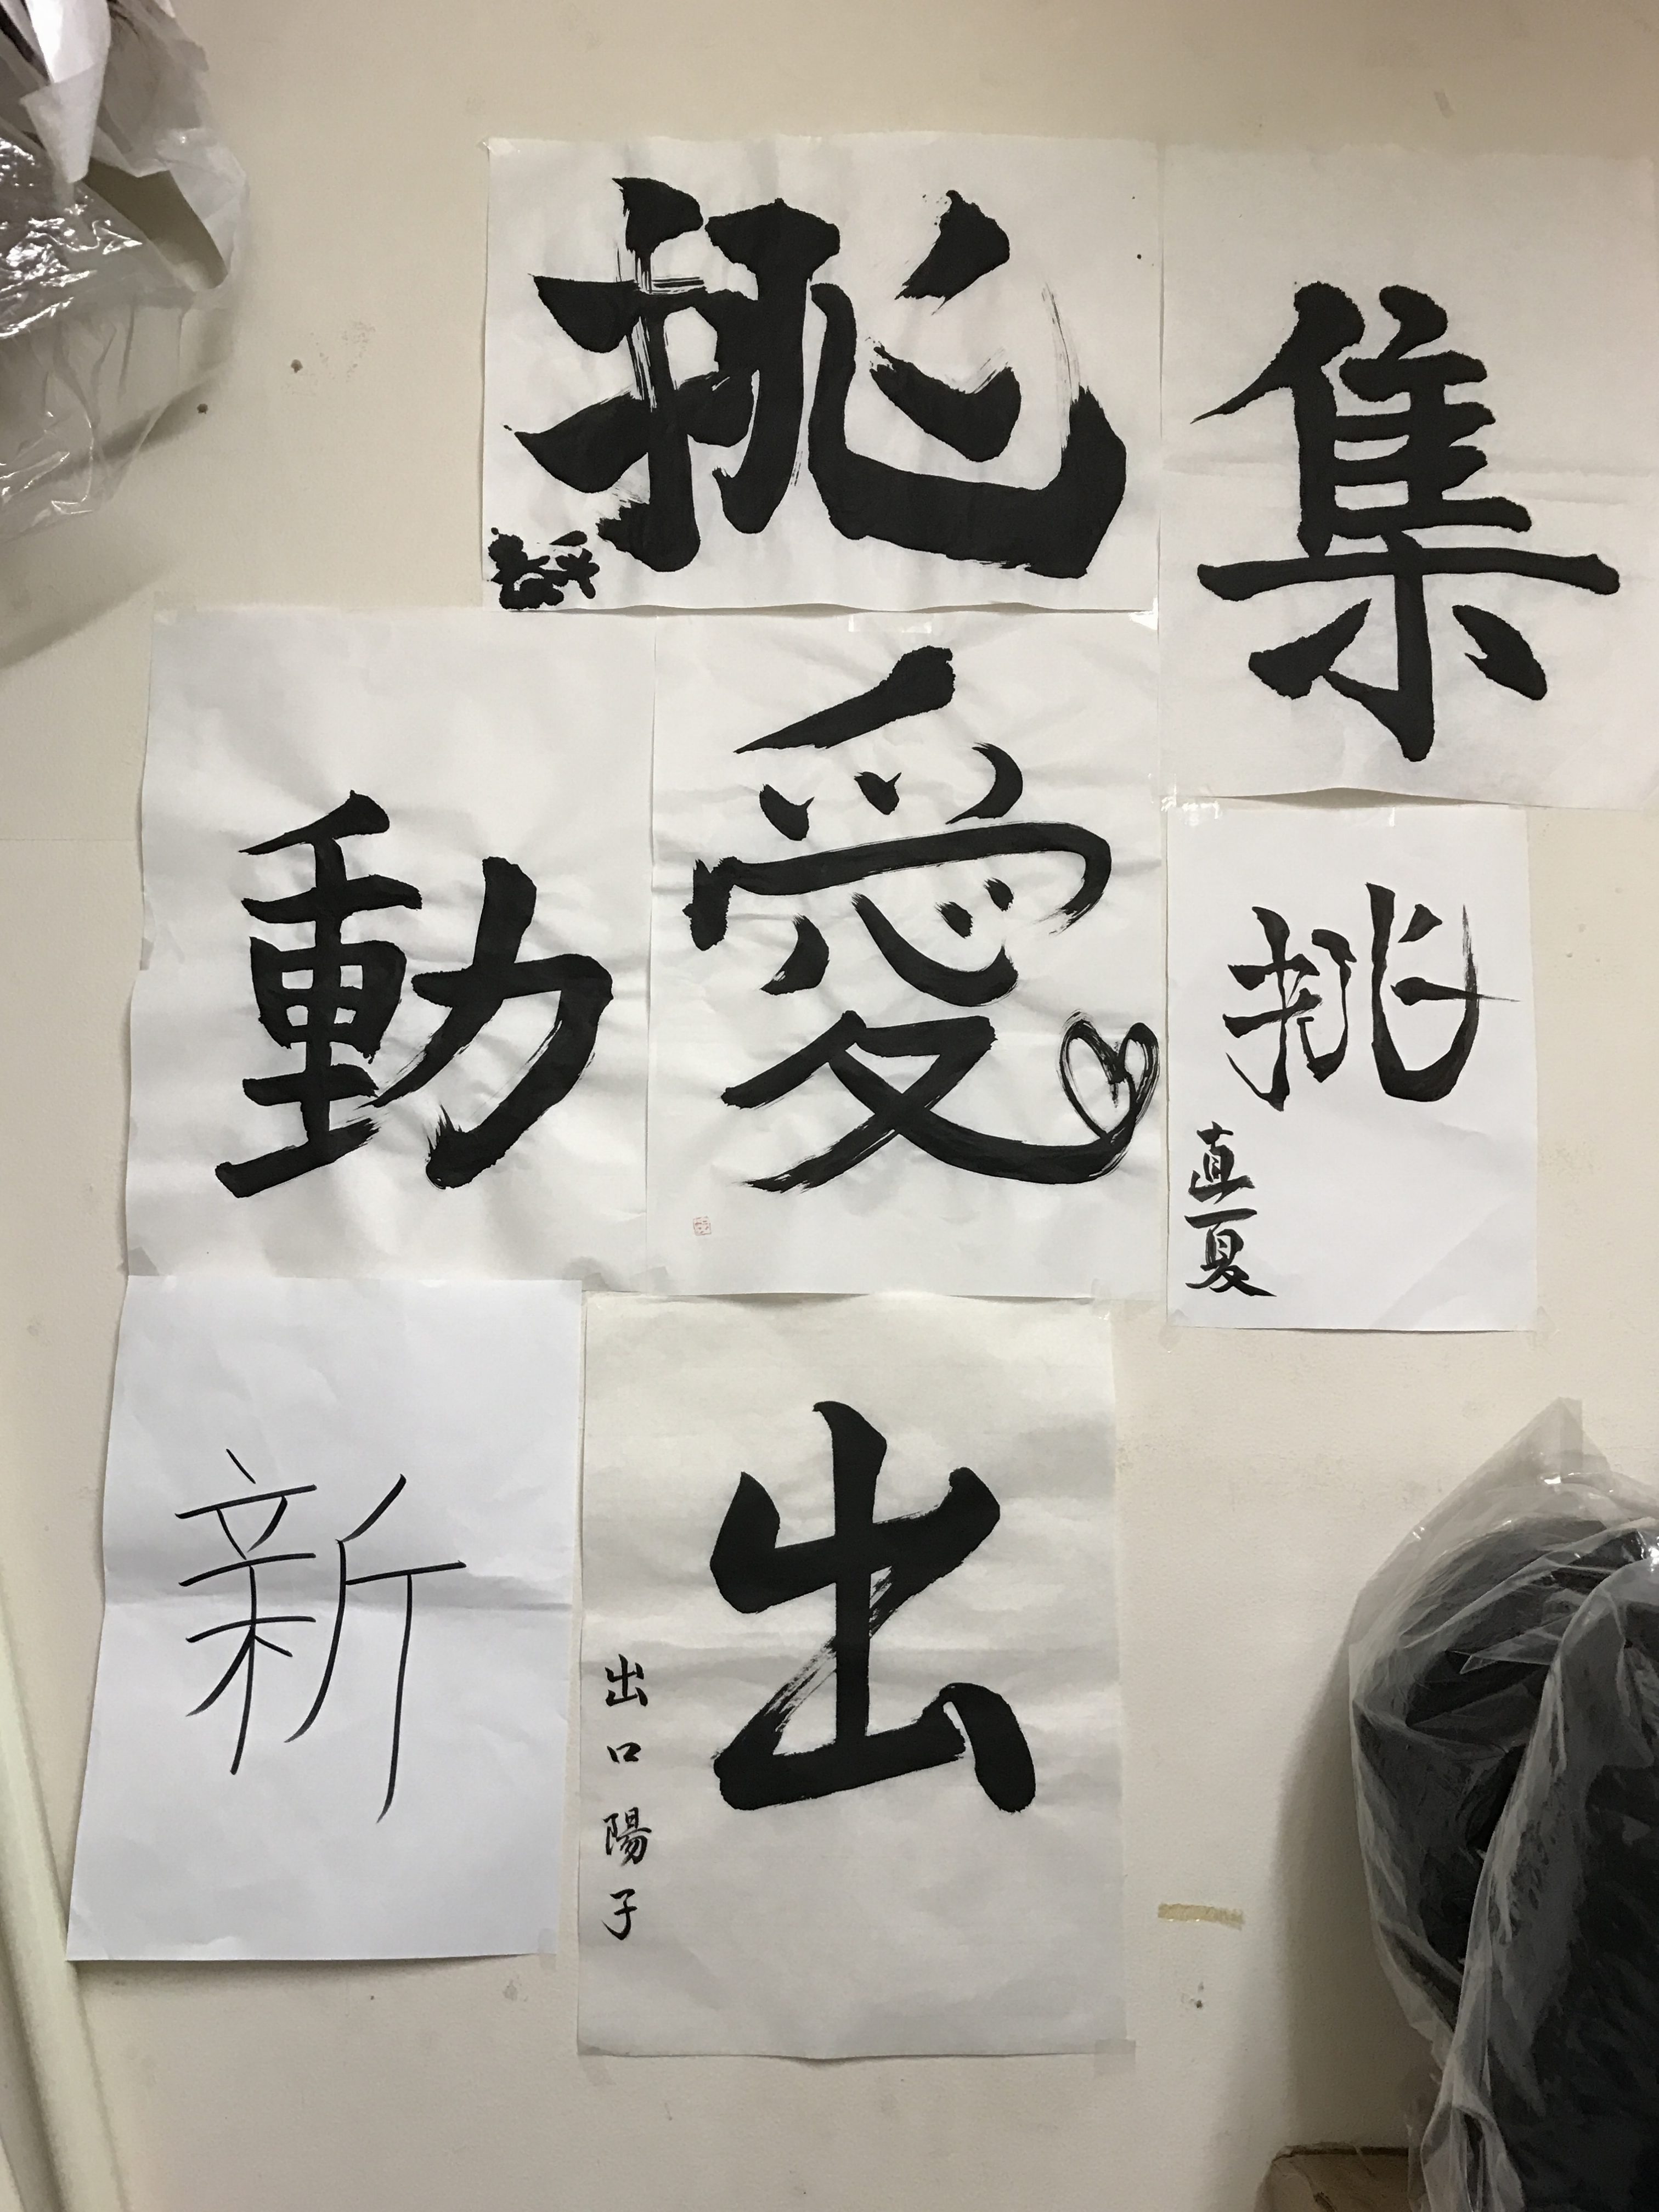 挑
集
動
愛
挑
直夏
新
出
出口陽子